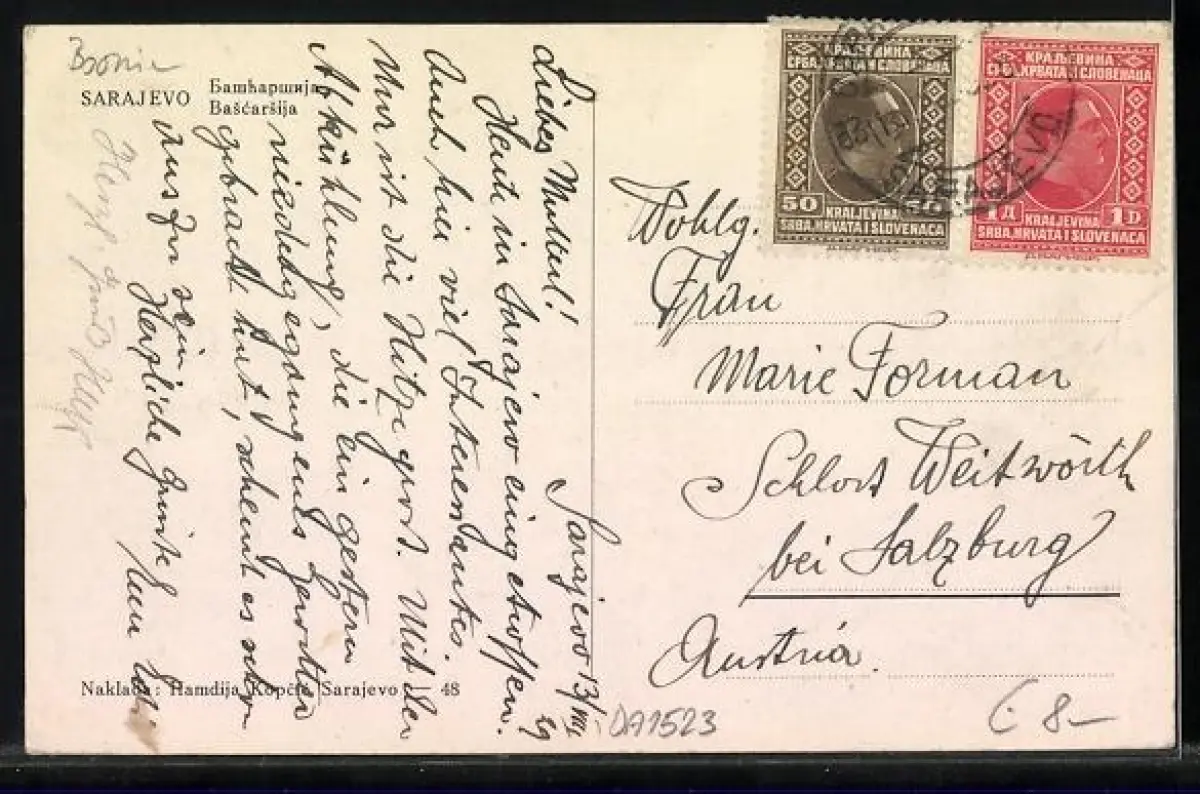 Bosnia
SARAJEVO
Башчаршија
Baščaršija
Sarajevo 13/VIII 29
Liebes Mutterl!
Heute in Sarajevo eingetroffen.
Auch hier viel Interessantes.
Nur ist die Hitze gross. Mit der
Abkühlung, die ein gestern
niedergegangenes Gewitter
gebracht hat, scheint es schon
aus zu sein
Herzliche Grüsse Euer
Naklada: Hamdija Kopčić Sarajevo
48
КРАЉЕВИНА
СРБА, ХРВАТА И СЛОВЕНАЦА
50 KRALJEVINA 50
SRBA, HRVATA I SLOVENACA
КРАЉЕВИНА
СРБА, ХРВАТА И СЛОВЕНАЦА
1 Д KRALJEVINA 1 D
SRBA, HRVATA I SLOVENACA
SARAJEVO
Wohlg.
Frau
Marie Forman
Schloss Weitwörth
bei Salzburg
Austria.
DA1523
€ 8-